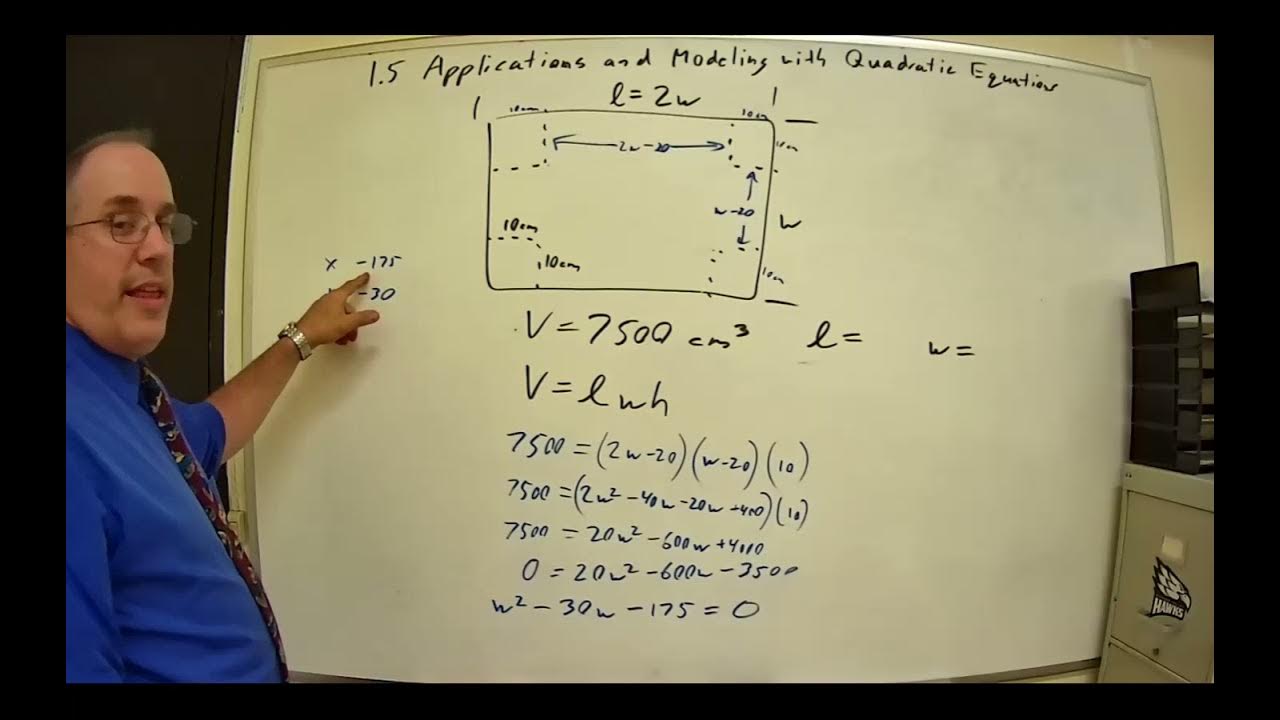 1.5 Applications and Modeling with Quadratic Equations
l = 2w
10cm
10cm
2w-20
10cm
w-20
w
10cm
10cm
10cm
x -175
-30
V = 7500 cm³ l = w =
V = lwh
7500 = (2w-20)(w-20)(10)
7500 = (2w² - 40w - 20w + 400)(10)
7500 = 20w² - 600w + 4000
0 = 20w² - 600w - 3500
w² - 30w - 175 = 0
HAWKS